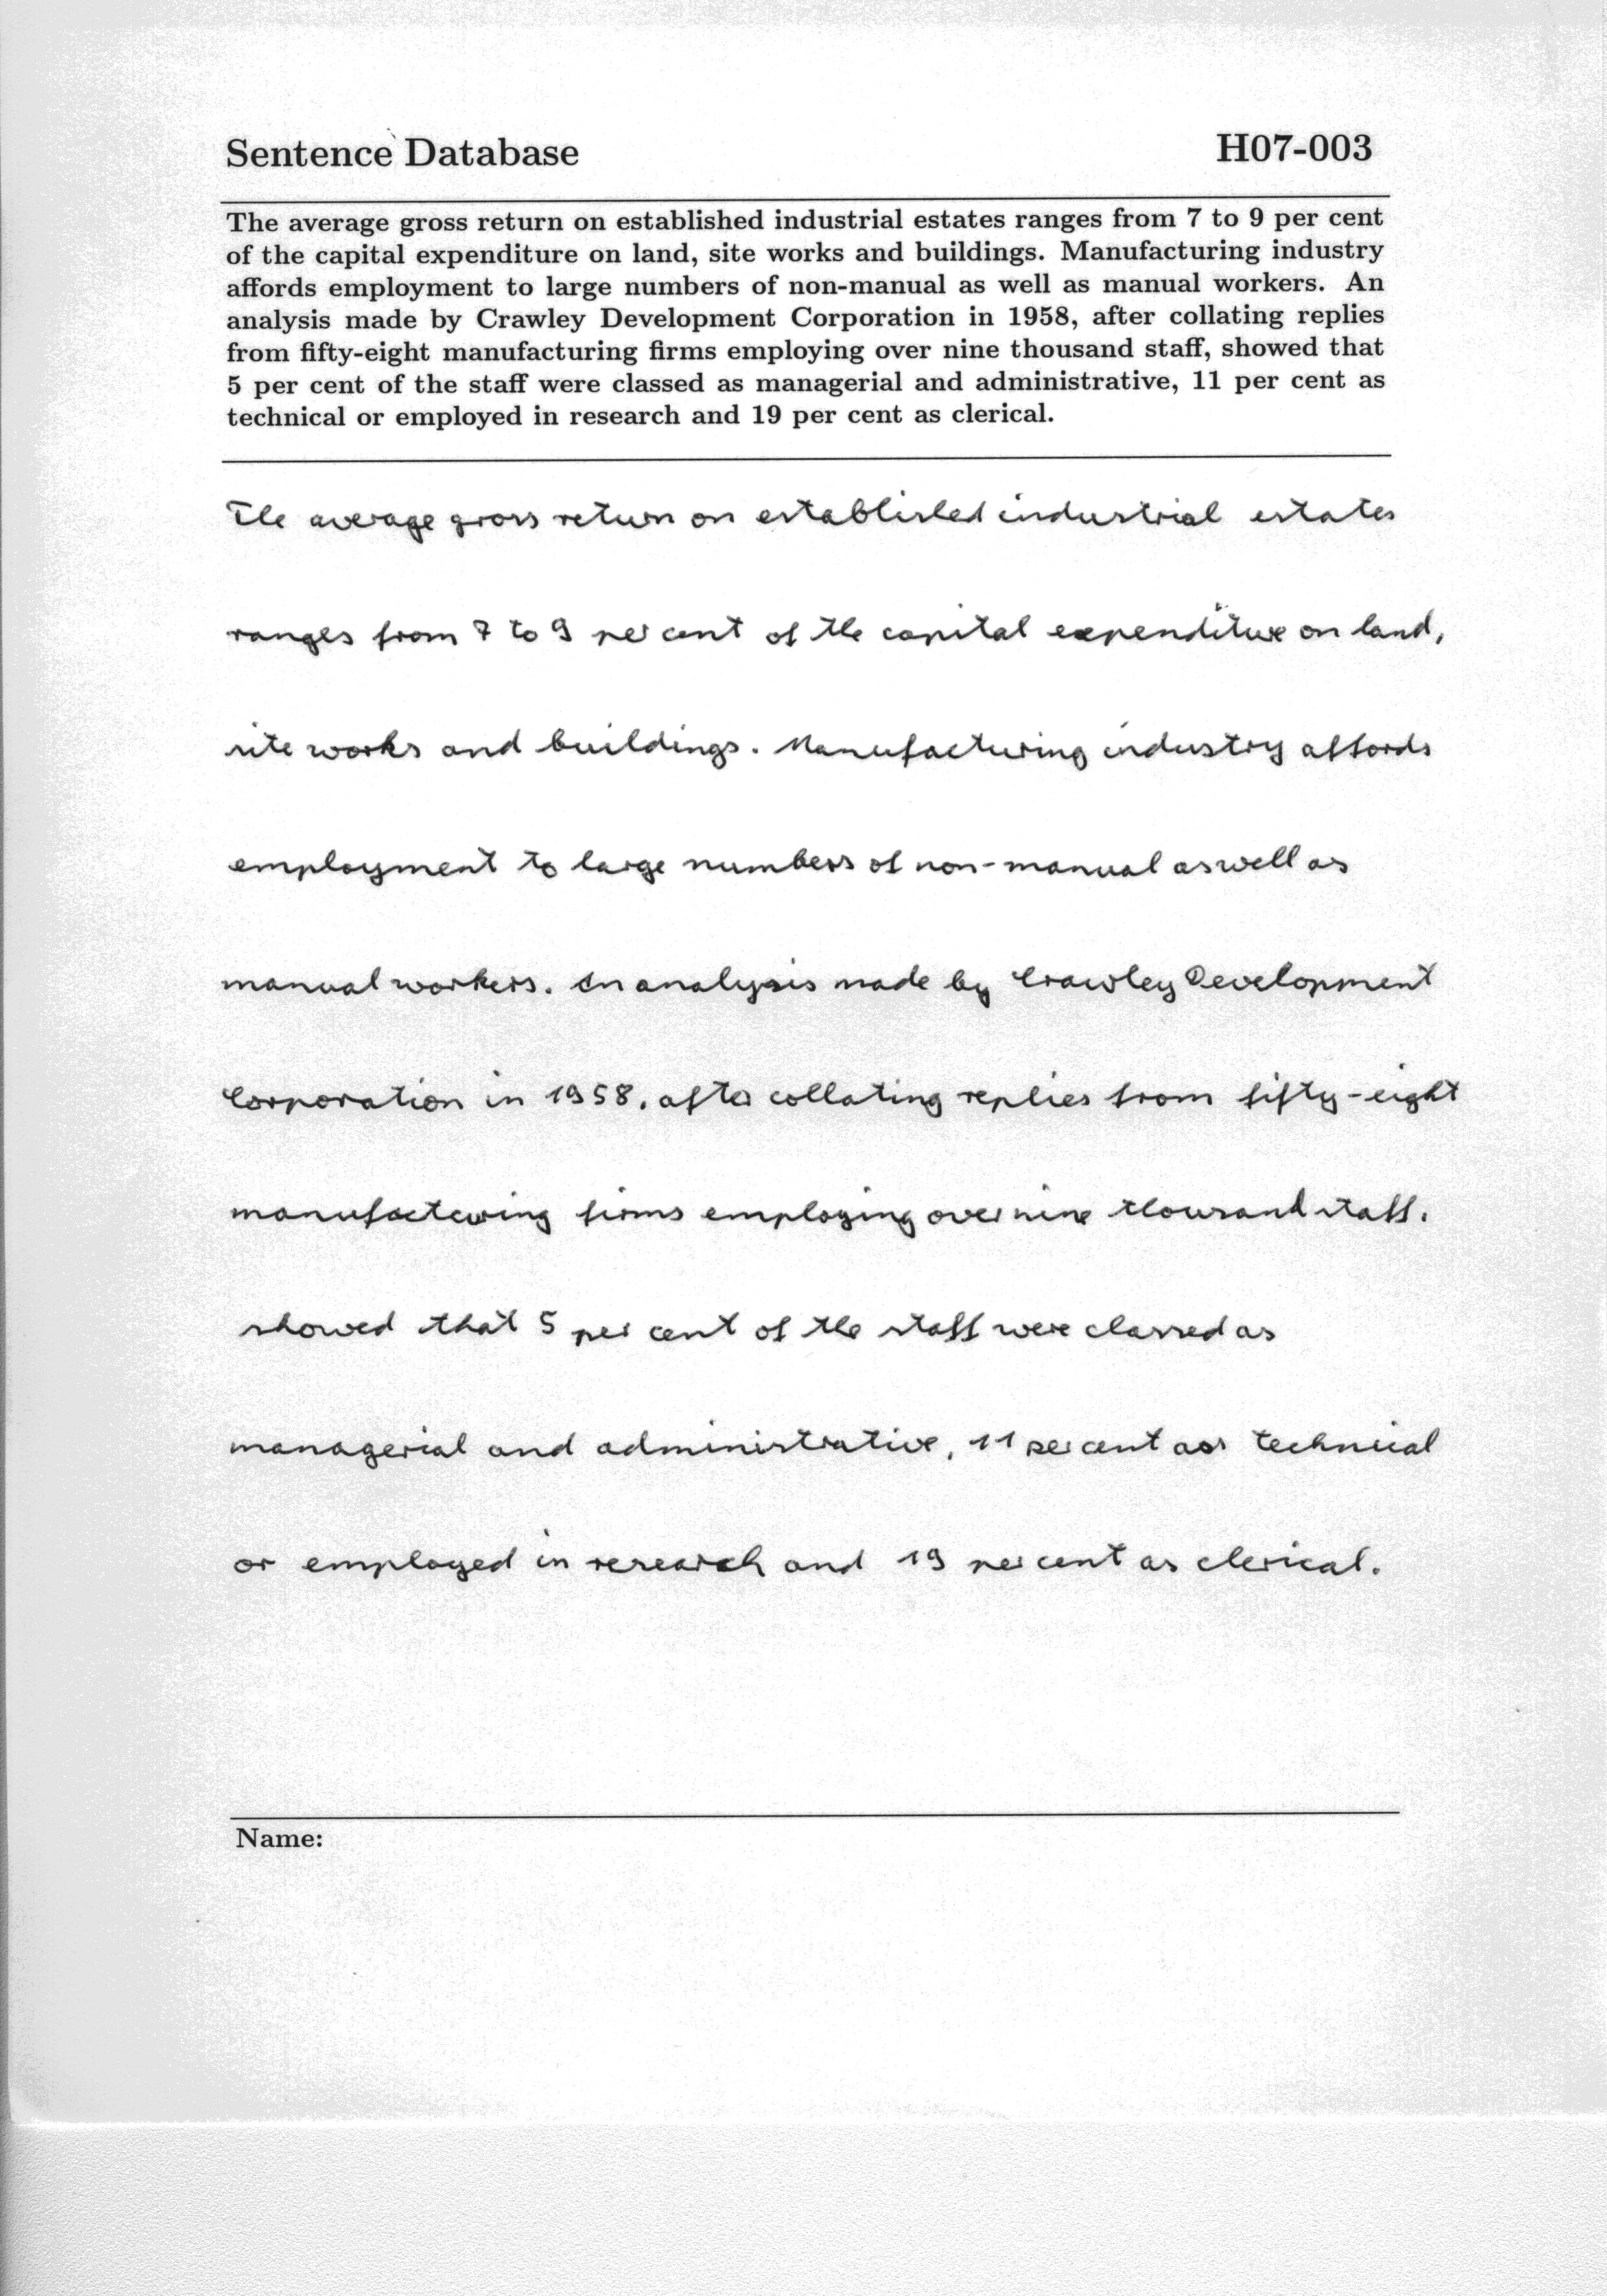 Sentence Database H07-003
The average gross return on established industrial estates ranges from 7 to 9 per cent
of the capital expenditure on land, site works and buildings. Manufacturing industry
affords employment to large numbers of non-manual as well as manual workers. An
analysis made by Crawley Development Corporation in 1958, after collating replies
from fifty-eight manufacturing firms employing over nine thousand staff, showed that
5 per cent of the staff were classed as managerial and administrative, 11 per cent as
technical or employed in research and 19 per cent as clerical.
The average gross return on established industrial estates
ranges from 7 to 9 per cent of the capital expenditure on land,
site works and buildings. Manufacturing industry affords
employment to large numbers of non-manual as well as
manual workers. An analysis made by Crawley Development
Corporation in 1958, after collating replies from fifty-eight
manufacturing firms employing over nine thousand staff,
showed that 5 per cent of the staff were classed as
managerial and administrative, 11 per cent as technical
or employed in research and 19 per cent as clerical.
Name: